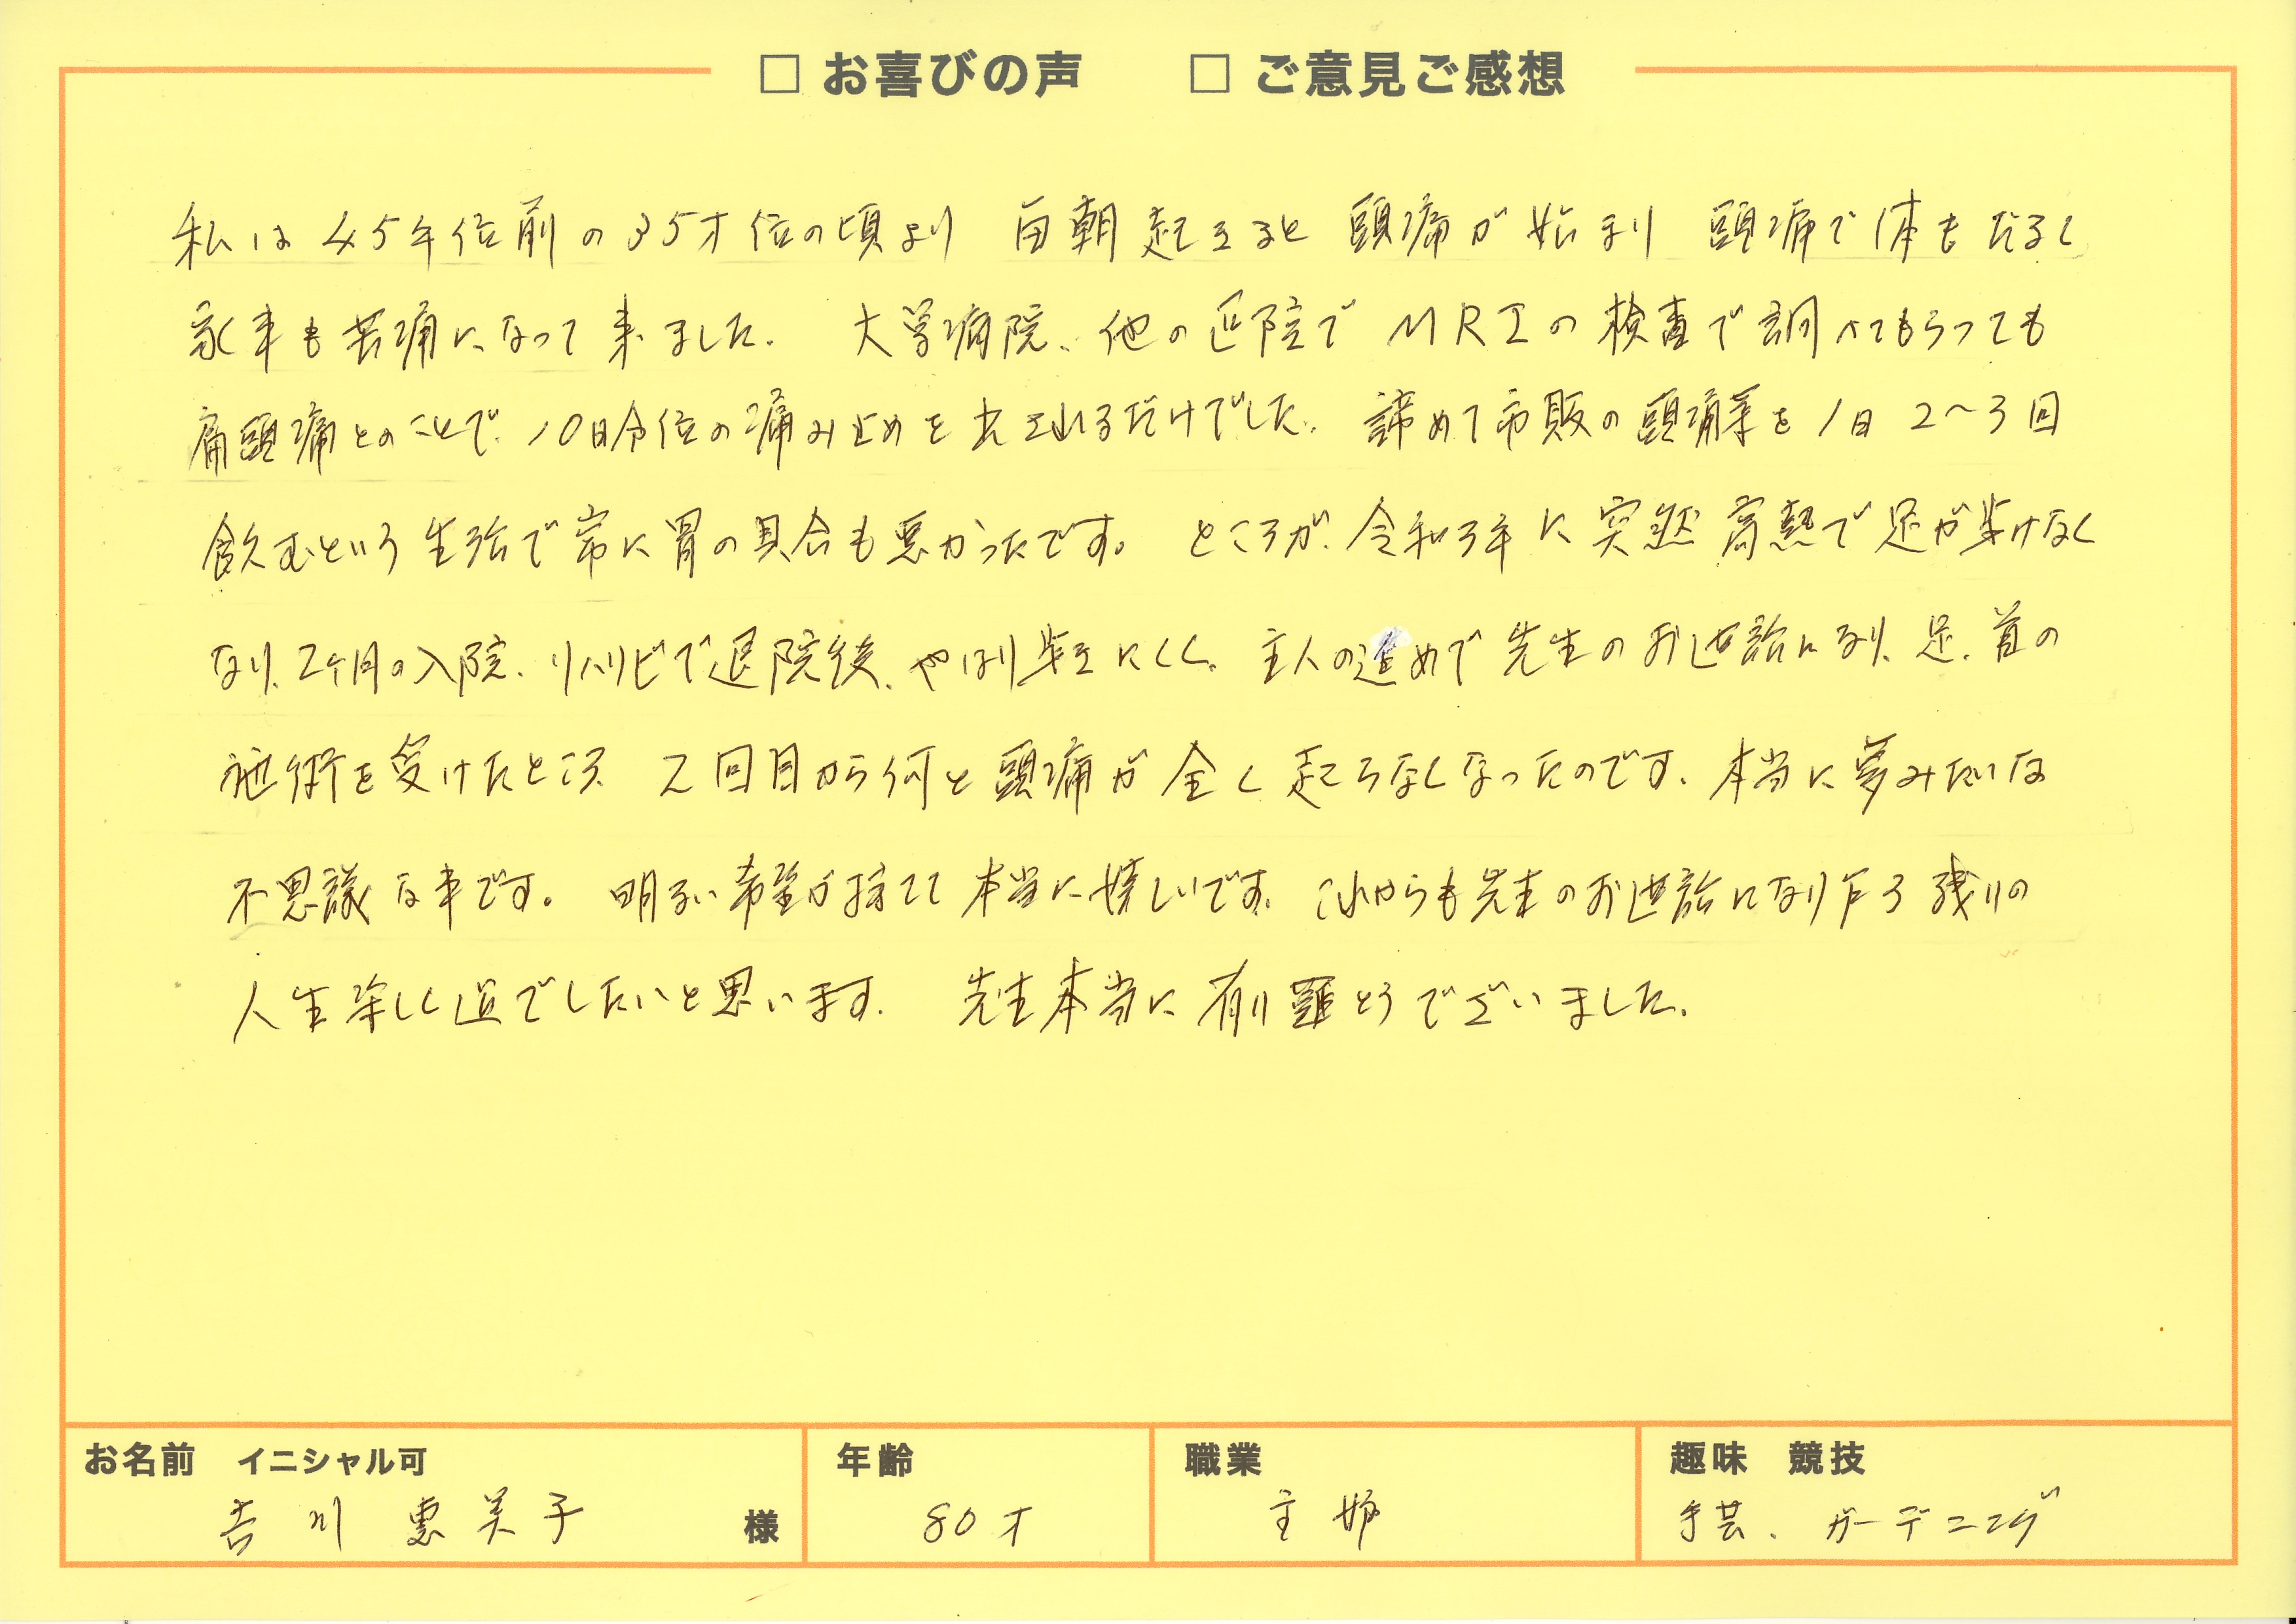 □ お喜びの声 □ ご意見ご感想
私は45年位前の35才位の頃より 毎朝起きると頭痛が始まり 頭痛で体もだるく
家事も苦痛になって来ました。 大学病院、他の医院でMRIの検査で調べてもらっても
扁頭痛とのことで、10日分位の痛み止めを出されるだけでした。 諦めて市販の頭痛薬を1日2〜3回
飲むという生活で常に胃の具合も悪かったです。 ところが、令和3年に突然高熱で足が歩けなく
なり、2ヶ月の入院、リハリビで退院後、やはり歩きにくく、主人の進めで先生のお世話になり、足、首の
施術を受けたところ 2回目から何と頭痛が全く起こらなくなったのです。本当に夢みたいな
不思議な事です。 明るい希望が持てて本当に嬉しいです。これからも先生のお世話になり乍ら残りの
人生楽しく過ごしたいと思います。 先生本当に有り難とうございました。
お名前 イニシャル可 年齢 職業 趣味 競技
吉川 恵美子 様 80才 主婦 手芸、ガーデニング